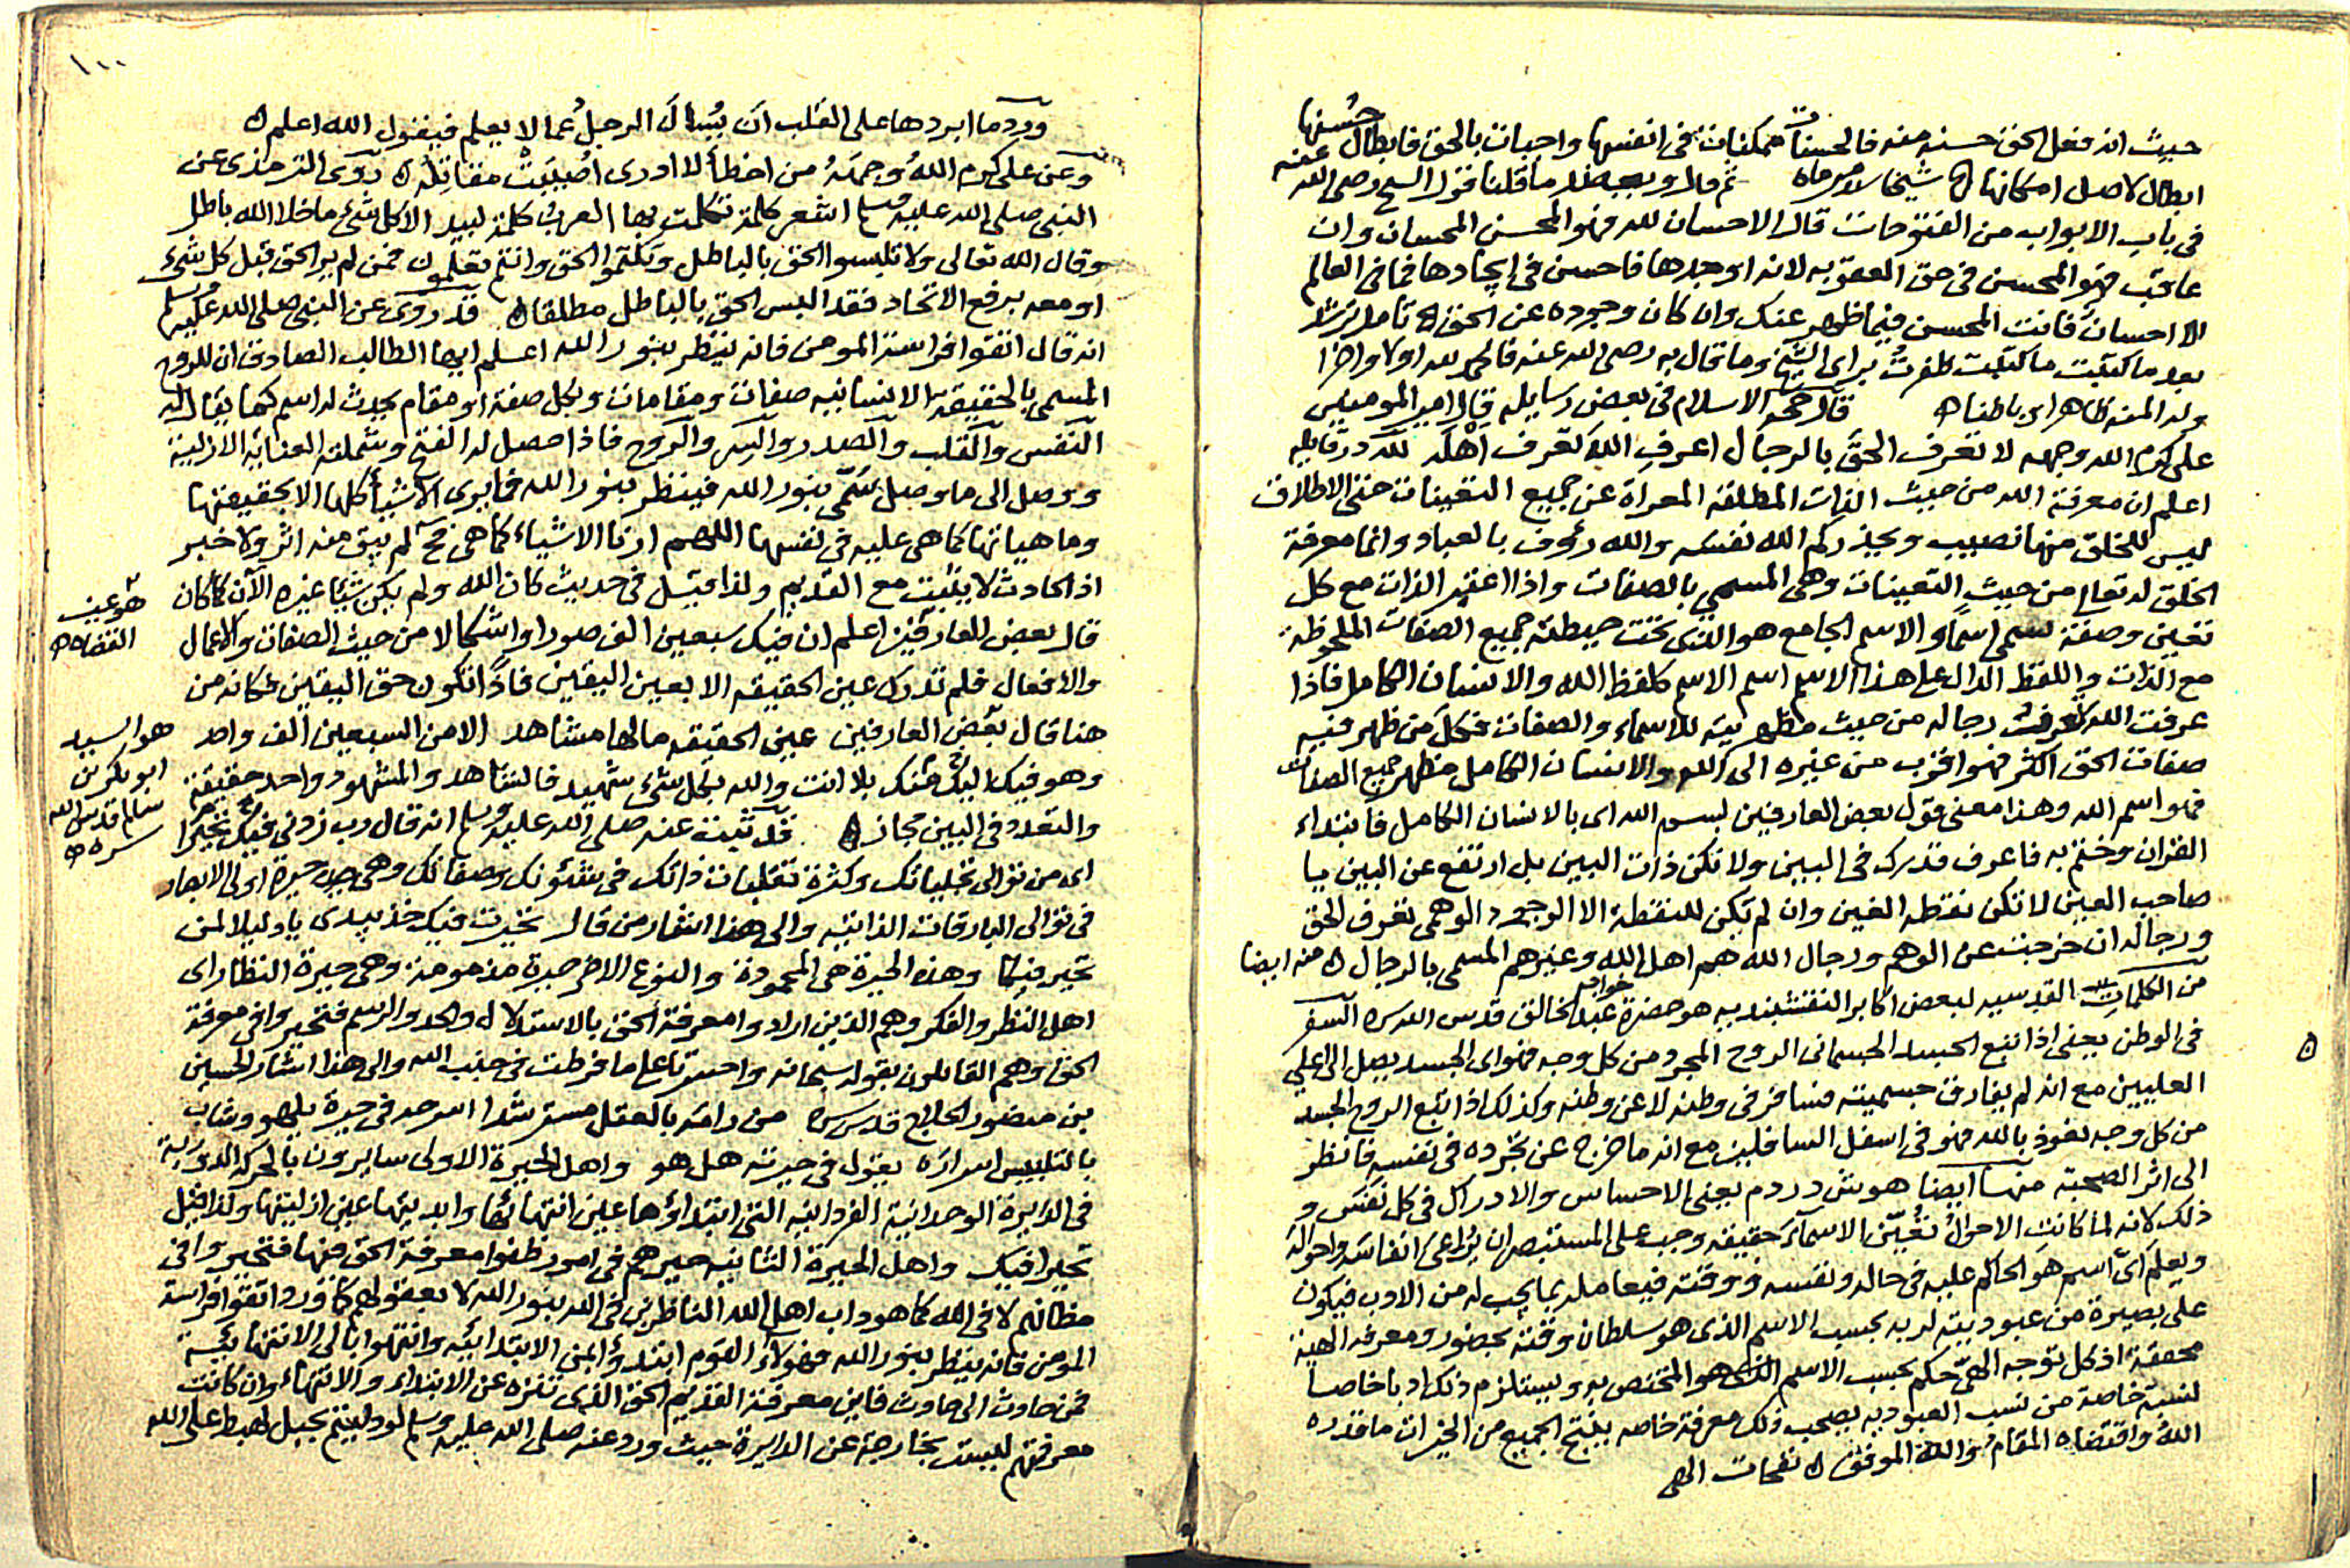 حيث انه فعل الحق حسنه منه فالحسنات ممكنات في انفسها واجبات بالحق فابطال حسنها
ابطال لاصل امكانها ه شيخنا ثم قال و ما قلنا قول الشيخ رضى الله عنه
في باب الابواب من الفتوحات قال الاحسان لله فهو المحسن المحسان وان
عاقب فهو المحسن في حق العقوبه لانه اوجدها فاحسن في ايجادها فما في العالم
الا احسان فانت المحسن فيما ظهر عنك وان كان وجوده عن الحق ه تامل ترشد
بعد ما كتبت ما كتبت ظفرت براى الشيخ وما قال به رضى الله عنه فالحمد لله اولا واخرا
وله المنه ظاهرا وباطنا ه قال حجة الاسلام في بعض رسايله قال امير المومنين
على كرم الله وجهه لا تعرف الحق بالرجال اعرف الله تعرف اهله لله در قايله
اعلم ان معرفة الله من حيث الذات المطلقة المعراة عن جميع التعينات حتى الاطلاق
ليس للخلق منها نصيب ويحذركم الله نفسه والله رؤف بالعباد وانما معرفة
الخلق له تعالى من حيث التعينات وهى المسمى بالصفات واذا اعتبر الذات مع كل
تعين وصفة تسمى اسما والاسم الجامع هو الذى تحت حيطته جميع الصفات الملحوظة
مع الذات واللفظ الدال على هذا الاسم اسم الاسم كلفظ الله والانسان الكامل فاذا
عرفت الله تعرف رجاله من حيث مظهريته للاسماء والصفات فكل من ظهر فيه
صفات الحق اكثر فهو اقرب من غيره الى الله والانسان الكامل مظهر جميع الصفات
فهو اسم الله وهذا معنى قول بعض العارفين بسم الله اى بالانسان الكامل فابتداء
القران وختم به فاعرف قدرك في البين ولا تكن ذات البين بل ارتفع عن البين يا
صاحب العين لا تكن نقطه الغين وان لم تكن للنقطة الا الوجود الوهمى تعرف الحق
ورجاله ان خرجت عن الوهم ورجال الله هم اهل الله وغيرهم المسمى بالرجال ه منه ايضا
من الكلمات القدسيه لبعض اكابر النقشبنديه هو حضرة خواجه عبد الخالق قدس الله سره السفر
في الوطن يعنى اذا تبع الجسد الجسمانى الروح المجرد من كل وجه فهو اى الجسد يصل الى اعلى
العليين مع انه لم يفارق جسميته فسافر في وطنه لا عن وطنه وكذلك اذا تبع الروح الجسد
من كل وجه نعوذ بالله فهو في اسفل السافلين مع انه ما خرج عن تجرده في نفسه فانظر
الى اثر الصحبة منها ايضا هوش در دم يعنى الاحساس والادراك في كل نفس و
ذلك لانه لما كانت الاحوال تعين الاسماء حقيقه وجب على المستبصر ان يراعى انفاسه واحواله
ويعلم اى اسم هو الحاكم عليه في حاله ونفسه ووقته فيعامله بما يجب له من الادب فيكون
على بصيرة من عبوديته لربه بحسب الاسم الذى هو سلطان وقته بحضور ومعرفة الهية
محققة اذ كل توجه الهى حكم بحسب الاسم الذى هو المختص به ويستلزم ذلك ادبا خاصا
لنسبة خاصة من نسب العبوديه يصحب ذلك معرفة خاصه ينتج الجميع من الخيرات ما قدره
الله واقتضاه المقام والله الموفق ه نفحات الهى
١٠٠
ورد ما ابردها على القلب ان يسال الرجل عما لا يعلم فيقول الله اعلم ه
وعن على كرم الله وجهه من اخطأ لا ادرى اصيبت مقاتله ه روى الترمذى عن
النبى صلى الله عليه وسلم اشعر كلمة تكلمت بها العرب كلمة لبيد الا كل شئ ما خلا الله باطل
وقال الله تعالى ولا تلبسوا الحق بالباطل وتكتموا الحق وانتم تعلمون فمن لم ير الحق قبل كل شئ
او معه برفع الاتحاد فقد البس الحق بالباطل مطلقا ه قد روى عن النبى صلى الله عليه وسلم
انه قال اتقوا فراسة المومن فانه ينظر بنور الله اعلم ايها الطالب الصادق ان للروح
المسمى بالحقيقة الانسانيه صفات ومقامات ولكل صفة او مقام يحدث له اسم كما يقال له
النفس والقلب والصدر والسر والروح فاذا حصل له الفتح وشملته العنايه الازلية
ووصل الى ما وصل سمى بنور الله فينظر بنور الله فما يرى الاشيا كلها الا بحقيقتها
وما هياتها كما هى عليه في نفسها اللهم ارنا الاشياء كما هى فح لم يبق منه اثر ولا خبر
اذ الحادث لا يثبت مع القديم ولذا قيل في حديث كان الله ولم يكن شيئا غيره الآن كما كان
قال بعض العارفين اعلم ان فيك سبعين الف صورا واشكالا من حيث الصفات والاعمال
هو عين
القضاه ه
والافعال فلم تدرك عين الحقيقه الا بعين اليقين فاذا تكون حق اليقين فكانه من
هنا قال بعض العارفين عين الحقيقه مالها مشاهد الا من السبعين الف واحد
وهو فيك اليك منك بلا انت والله بكل شئ شهيد فالشاهد والمشهود واحد حقيقة
هو السيد
ابو بكر بن
سالم قدس الله
سره ه
والتعدد في البين مجاز ه قد ثبت عنه صلى الله عليه وسلم انه قال رب زدنى فيك تحيرا
اى من توالى تجلياتك وكثرة تقلبات ذاتك في شئونك وصفاتك وهى حيرة اولى الابصار
في توالى البارقات الذاتيه والى هذا اشار من قال تحيرت فيك خذ بيدى يا دليلا لمن
تحير فيكا وهذه الحيرة هى المحمودة والنوع الاخر حيرة مذمومة وهى حيرة النظار اى
اهل النظر والفكر وهم الذين ارادوا معرفة الحق بالاستدلال والحد والرسم فتحيروا في معرفة
الحق وهم القايلون بقوله سبحانه واحسرتا على ما فرطت في جنب الله والى هذا اشار الحسين
بن منصور الحلاج قدس سره من رامه بالعقل مسترشدا اسرحه في حيرة يلهو وشاب
بالتلبيس اسراره يقول في حيرته هل هو واهل الحيرة الاولى سايرون بالحركه الدورية
في الدايرة الوحدانية الفردانيه التى ابتداؤها عين انتهائها وابديتها عين ازليتها ولذا قيل
تحيروا فيك واهل الحيرة الثانيه حيرهم في امور ظنوا معرفة الحق منها فتحيروا في
مظانهم لا في الله كما هو داب اهل الله الناظرين في الله بنور الله لا بعقولهم كما ورد اتقوا فراسة
المومن فانه ينظر بنور الله فهولاء القوم ابتدؤا من الابتدائيه وانتهوا الى الانتهائية
فمن حادث الى حادث فاين معرفة القديم الحق الذى تنزه عن الابتداء والانتهاء وان كانت
معرفتهم ليست بخارجة عن الدايرة حيث ورد عنه صلى الله عليه وسلم لو دليتم بحبل لهبط على الله